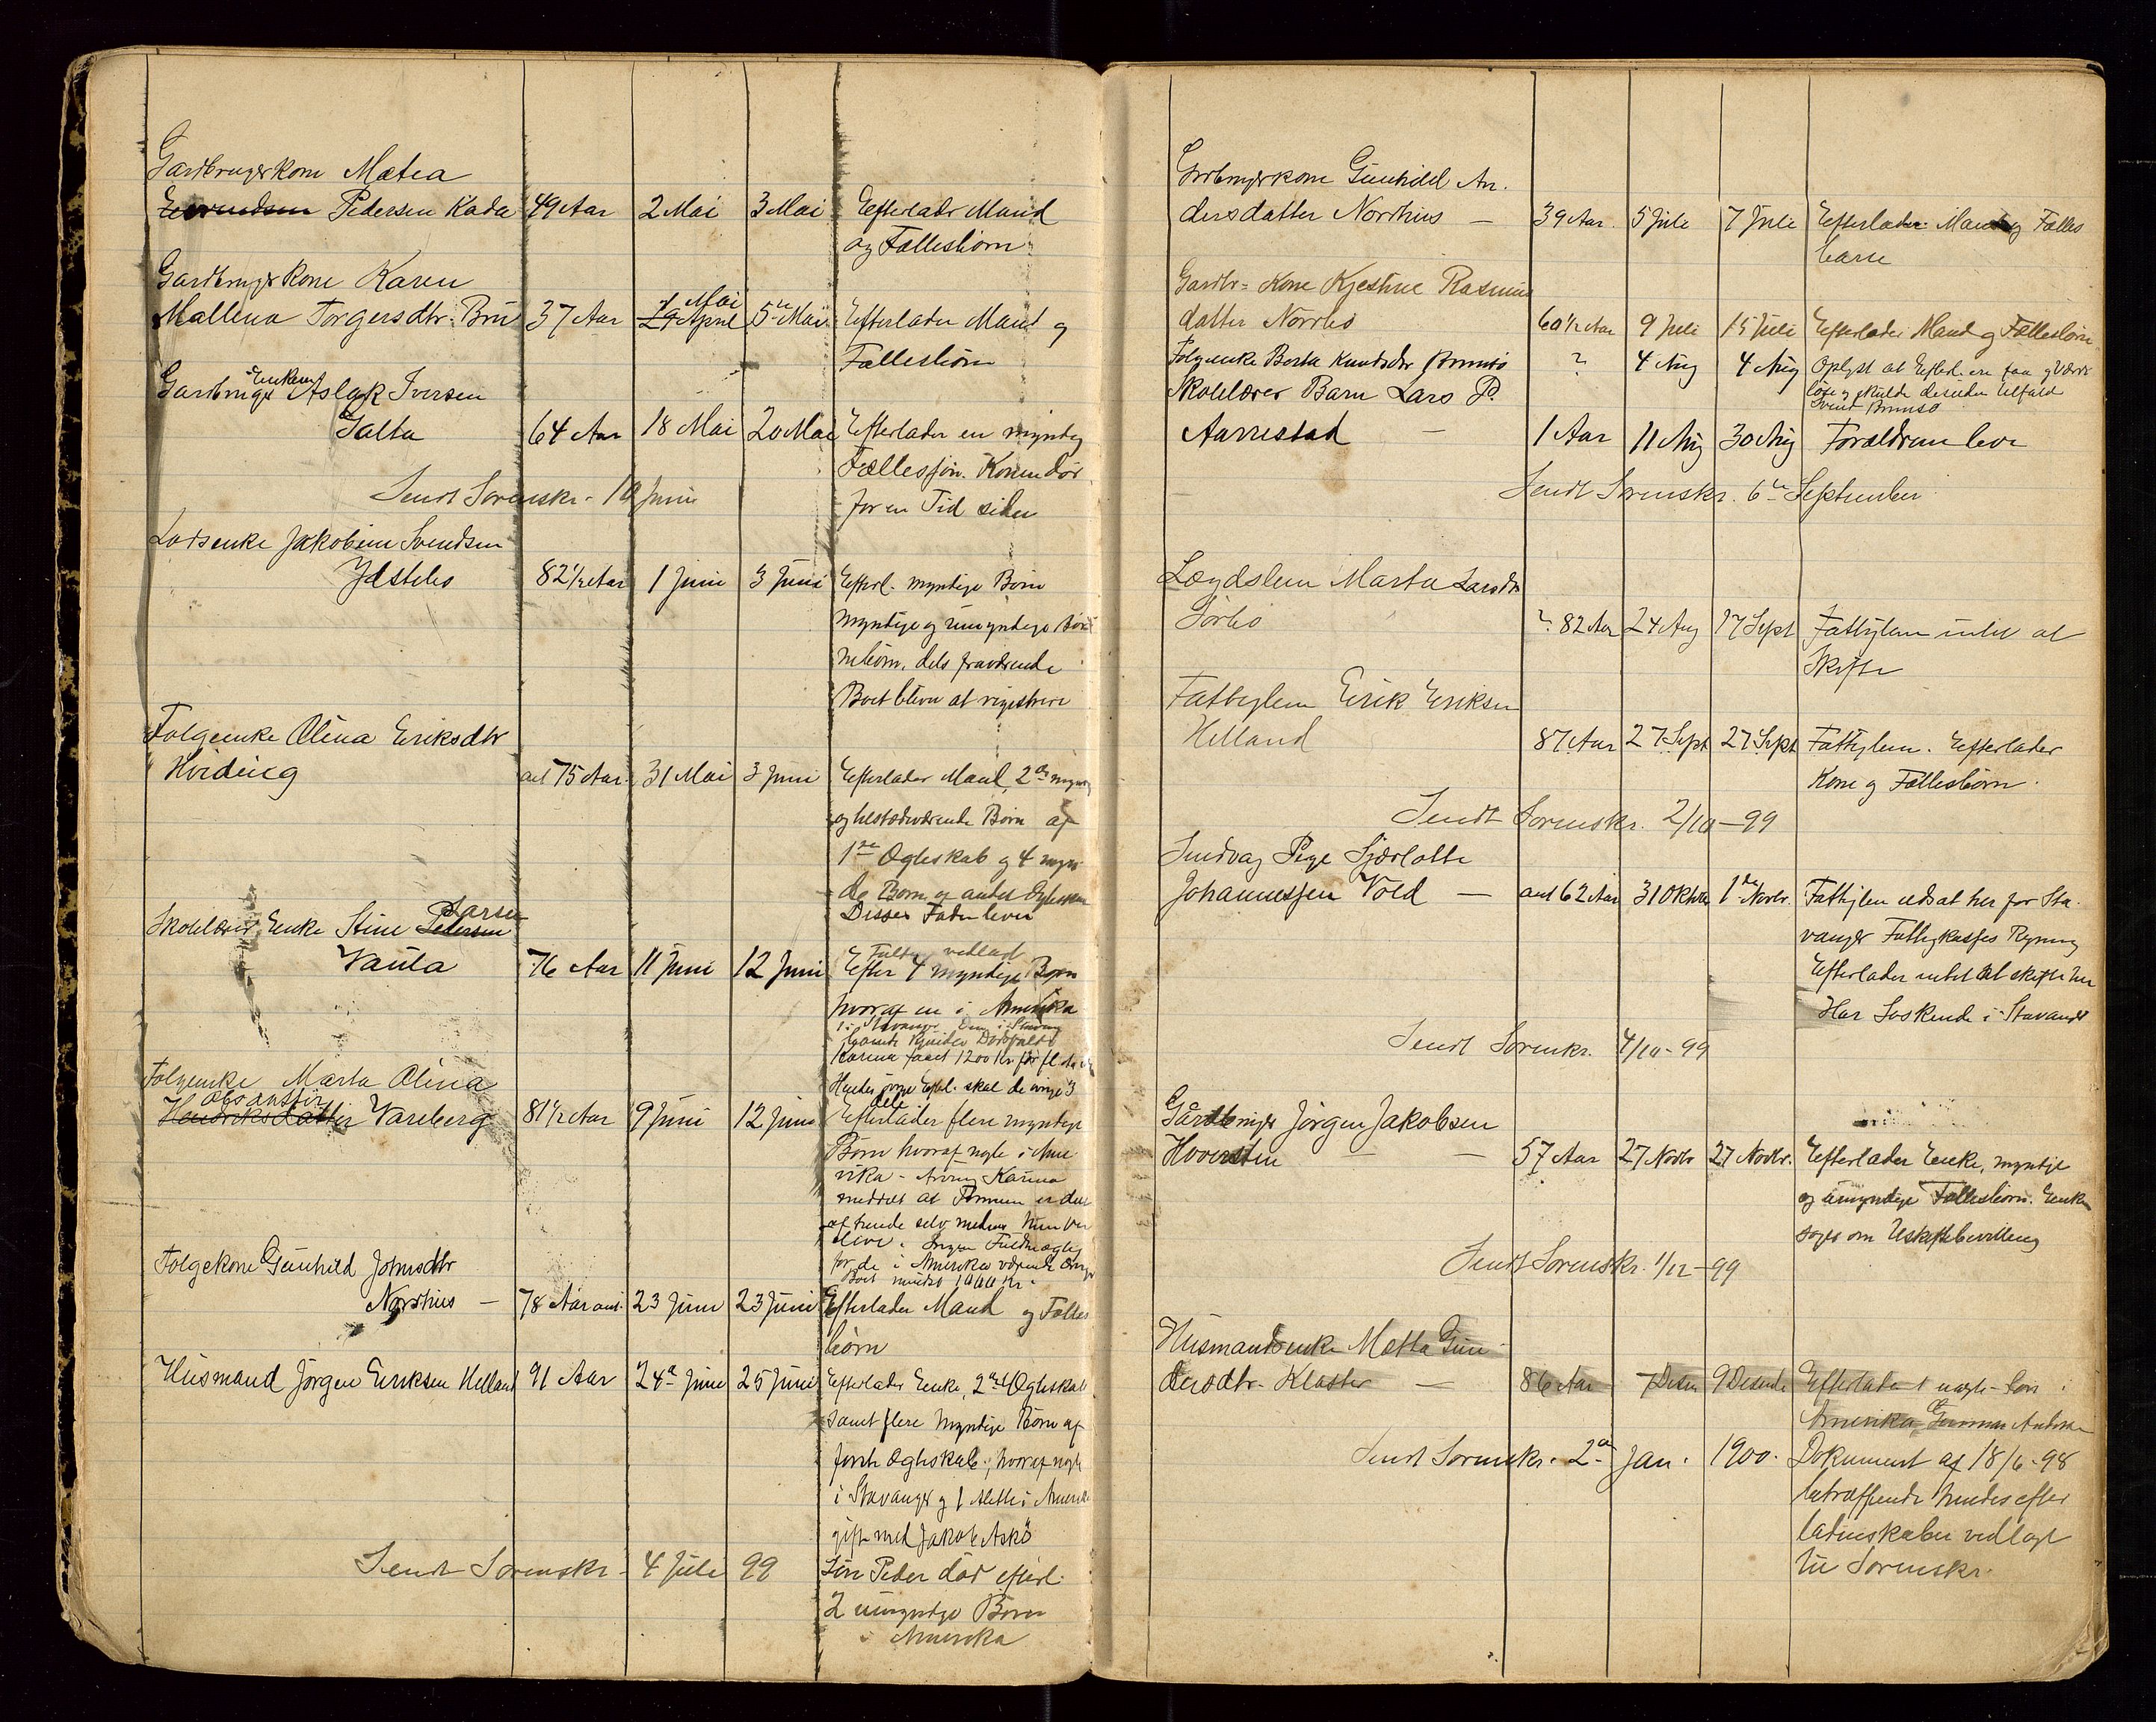 Gardbrugerkone Matea
Pedersen Kada 49 Aar 2 Mai 3 Mai Efterlader Mand
og Fællesbørn
Gardbruger Kone Karen
Mallena Torgersdtr. Bru 37 Aar 29 April 5te Mai Efterlader Mand og
Mai
Fællesbørn
Gardbruger Enkem Aslak Iversen
Salta 64 Aar 18 Mai 20 Mai Efterlader en myndig
Fællessøn. Konen dør
for en Tid siden
Sendt Sorenskr. 10 Juni
Lodsenke Jakobine Svendsen
82 1/2 Aar 1 Juni 3 Juni Efterl. myndige Børn
myndige og umyndige Bør
nebørn, dels fraværende
Boet bliver at registrere
Folgeenke Olina Eriksdtr
Hviding ant 75 Aar 31 Mai 3 Juni Efterlader Mand, 2de
og tilstedeværende Børn af
1ste Ægteskab og 4 myn
de Børn og andet
Disses Fader lever
Skolelærer Enke Stine Pedersen
Larsen
Vaula 76 Aar 11 Juni 12 Juni Efter 4 myndige Børn
hvoraf en i Amerika
Karina faaet 1200 Kr
Folgeenke Marta Olina
Hendriksdatter Vareberg 81 1/2 Aar 9 Juni 12 Juni Efterlader flere myndige
Børn hvoraf nogle i Ame
rika - Arving Karina
meddelt at
selv medens hun var
for de i Amerika værende
Boet mindst 1000 Kr.
Folgekone Gunhild Johnsdtr
Nordhus — 78 Aar ant. 23 Juni 23 Juni Efterlader Mand og Fælles
børn
Husmand Jørgen Eriksen Helland 91 Aar 24de Juni 25 Juni Efterlader Enke, 2det Ægteskab
samt flere myndige Børn af
første Ægteskab, hvoraf nogle
i Stavanger og 1 i Amerika
gift med Jakob Askø
Sendt Sorenskr 4 Juli 99 Søn Peder død efterl.
2 umyndige Børn
i Amerika
Grdbrugerkone Gunhild An.
dersdatter Nordhus — 39 Aar. 5 Juli 7 Juli Efterlader Mand og Fælles
barn
Gardbr. Kone Kjestine Rasmus
datter Nørrbø 60 1/2 Aar 9 Juli 15 Juli Efterlader Mand og Fællesbørn
Folgeenke Berta Knudsdtr Brimsø ? 4 Aug 4 Aug Oplyst at Efterl. ere faa og værdi
løse og skulde desuden tilfalde
Svend Brimsø
Skolelærer Barn Lars P.
Aarrestad — 1 Aar 11 Aug 30 Aug Forældrene lever
Sendt Sorenskr. 6te September
Lægdslem Marta Larsdtr
Sørbø ? 82 Aar 24 Aug 17 Sept Fattiglem intet at
skifte
Fattiglem Erik Eriksen
Helland 87 Aar 27 Sept 27 Sept Fattiglem. Efterlader
Kone og Fællesbørn.
Sendt Sorenskr. 2/10 - 99
Sindsvag Pige Sjarlotte
Johannessen Vold — ant 62 Aar 31 Oktbr 1ste Novbr. Fattiglem udsat her for Sta.
vanger Fattigkasses Regning
Efterlader intet at skifte her
Har Søskende i Stavanger
Sendt Sorenskr. 4/10 - 99
Gårdbruger Jørgen Jakobsen
Hoversten — — 57 Aar 27 Novbr 27 Novbr. Efterlader Enke, myndige
og umyndige Fællesbørn. Enken
søger om Uskiftebevilling
Sendt Sorenskr. 1/12 - 99
Husmandsenke Metta Gun
dersdtr. Kloster — 86 Aar 7 Desbr 9 Desembr Efterlader 1 Søn i
Amerika Gunnar
Sendt Sorenskr. 2de Jan. 1900. Dokument af 18/6 - 98
betræffende hendes efter
ladenskaber vedlagt
til Sorenskr.